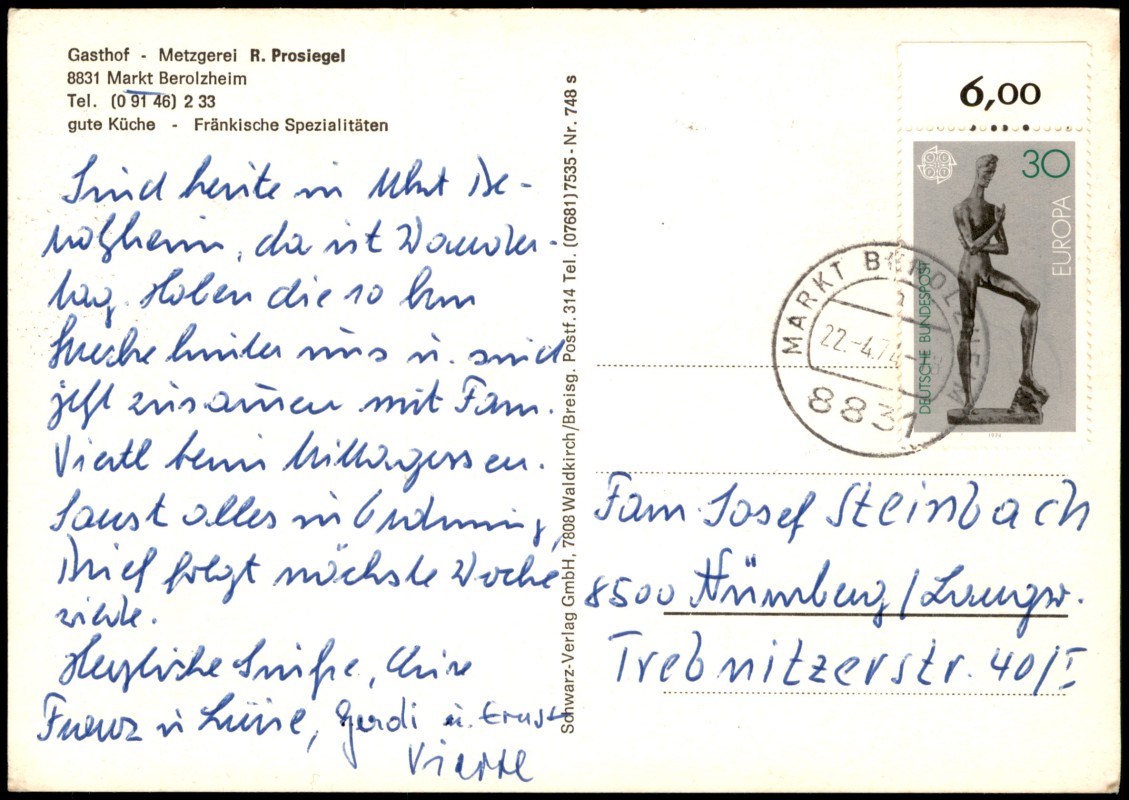 Gasthof - Metzgerei R. Prosiegel
8831 Markt Berolzheim
Tel. (0 91 46) 2 33
gute Küche - Fränkische Spezialitäten
Sind heute in Mkt Be-
rolzheim, da ist Wander-
tag. Haben die 10 km
Strecke hinter uns u. sind
jetzt zusammen mit Fam.
Viertl beim Mittagessen.
Sonst alles in Ordnung,
Brief folgt nächste Woche
wieder.
Herzliche Grüße, Eure
Franz u. Luise, Gerdi u. Ernst
Viertl
Schwarz-Verlag GmbH, 7808 Waldkirch/Breisg. Postf. 314 Tel. (07681) 7535 - Nr. 748 s
6,00
30
EUROPA
DEUTSCHE BUNDESPOST
1974
MARKT BEROLZHEIM
22.-4.74
8831
Fam. Josef Steinbach
8500 Nürnberg/Langw.
Trebnitzerstr. 40/I